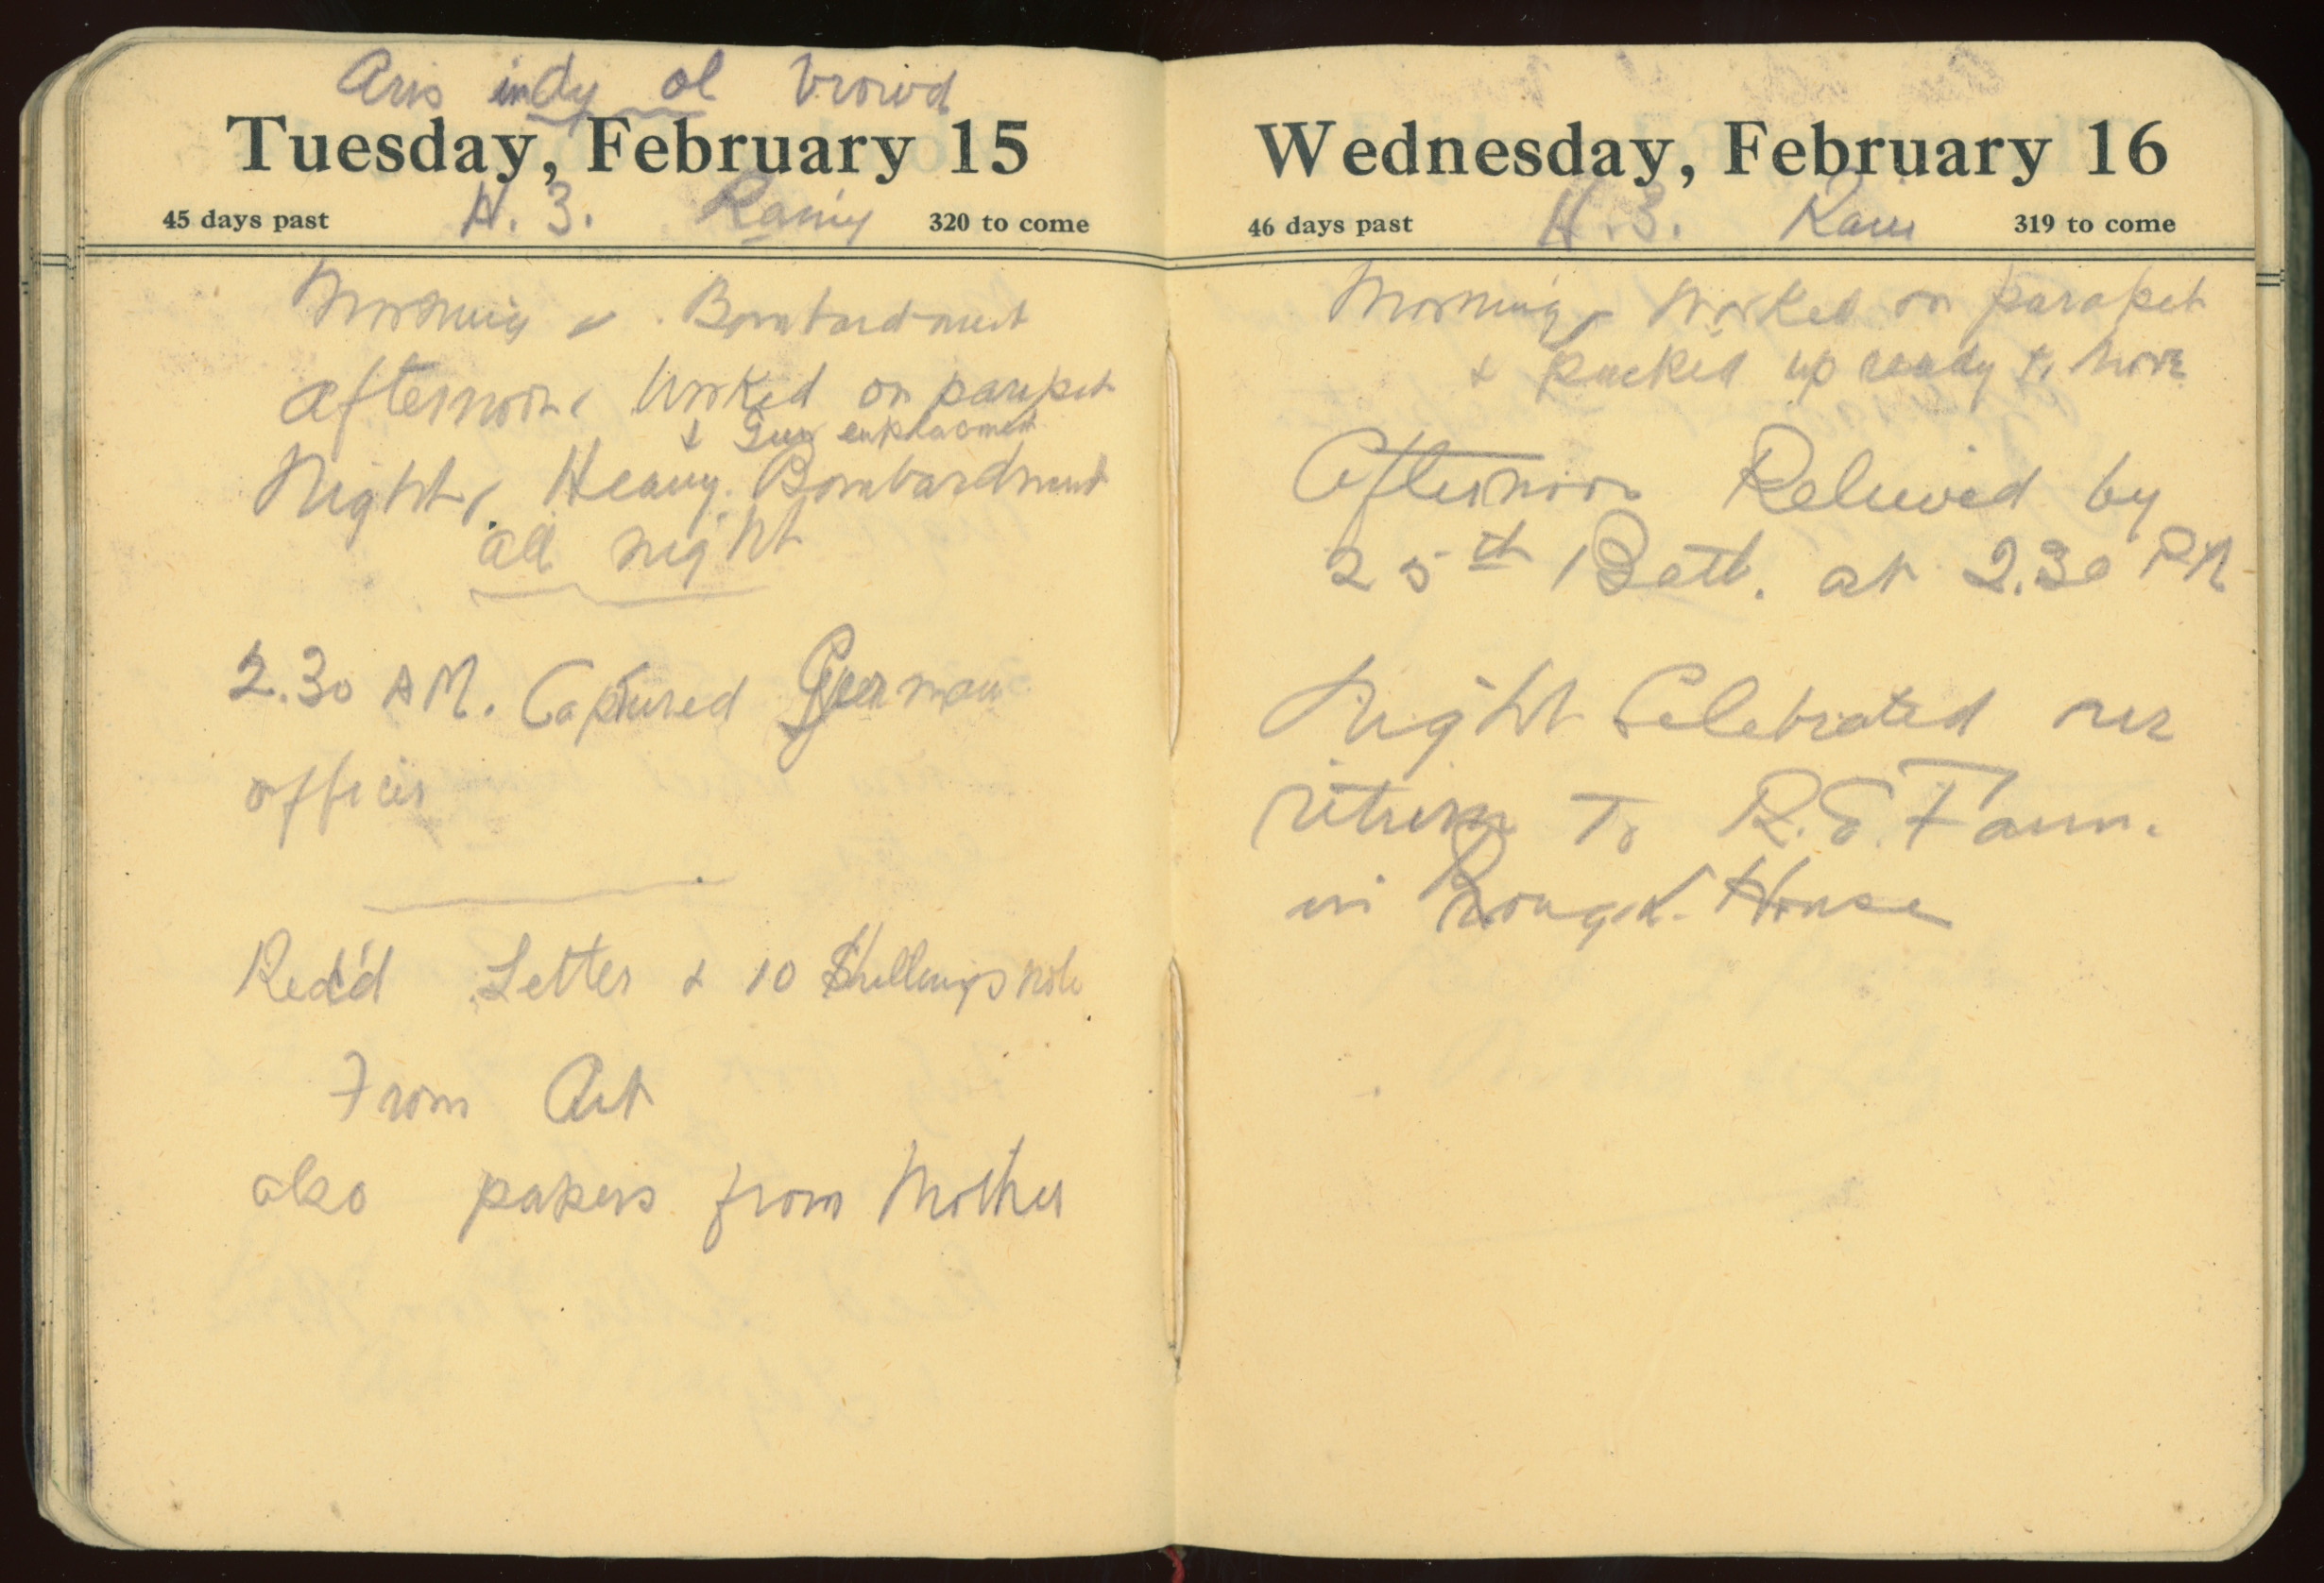 Tuesday, February 15
45 days past H. 3. Rainy 320 to come
Morning - Bombardment
afternoon, Worked on parapet
& Gun emplacment
Night, Heavy Bombardment
all night
2.30 AM. Captured German
officer
Rec'd Letter & 10 Shillings note
From Art
also papers from Mother
Wednesday, February 16
46 days past H.3. Rain 319 to come
Morning, Worked on parapet
& packed up ready to move
Afternoon Relieved by
25th Batt. at 2.30 PM
Night Celebrated our
return To R.E. Farm.
in Rough House